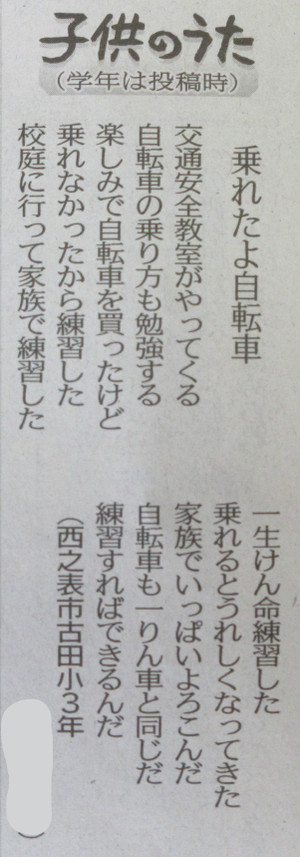 子供のうた
(学年は投稿時)
乗れたよ自転車
交通安全教室がやってくる
自転車の乗り方も勉強する
楽しみで自転車を買ったけど
乗れなかったから練習した
校庭に行って家族で練習した
一生けん命練習した
乗れるとうれしくなってきた
家族でいっぱいよろこんだ
自転車も一りん車と同じだ
練習すればできるんだ
(西之表市古田小3年
)